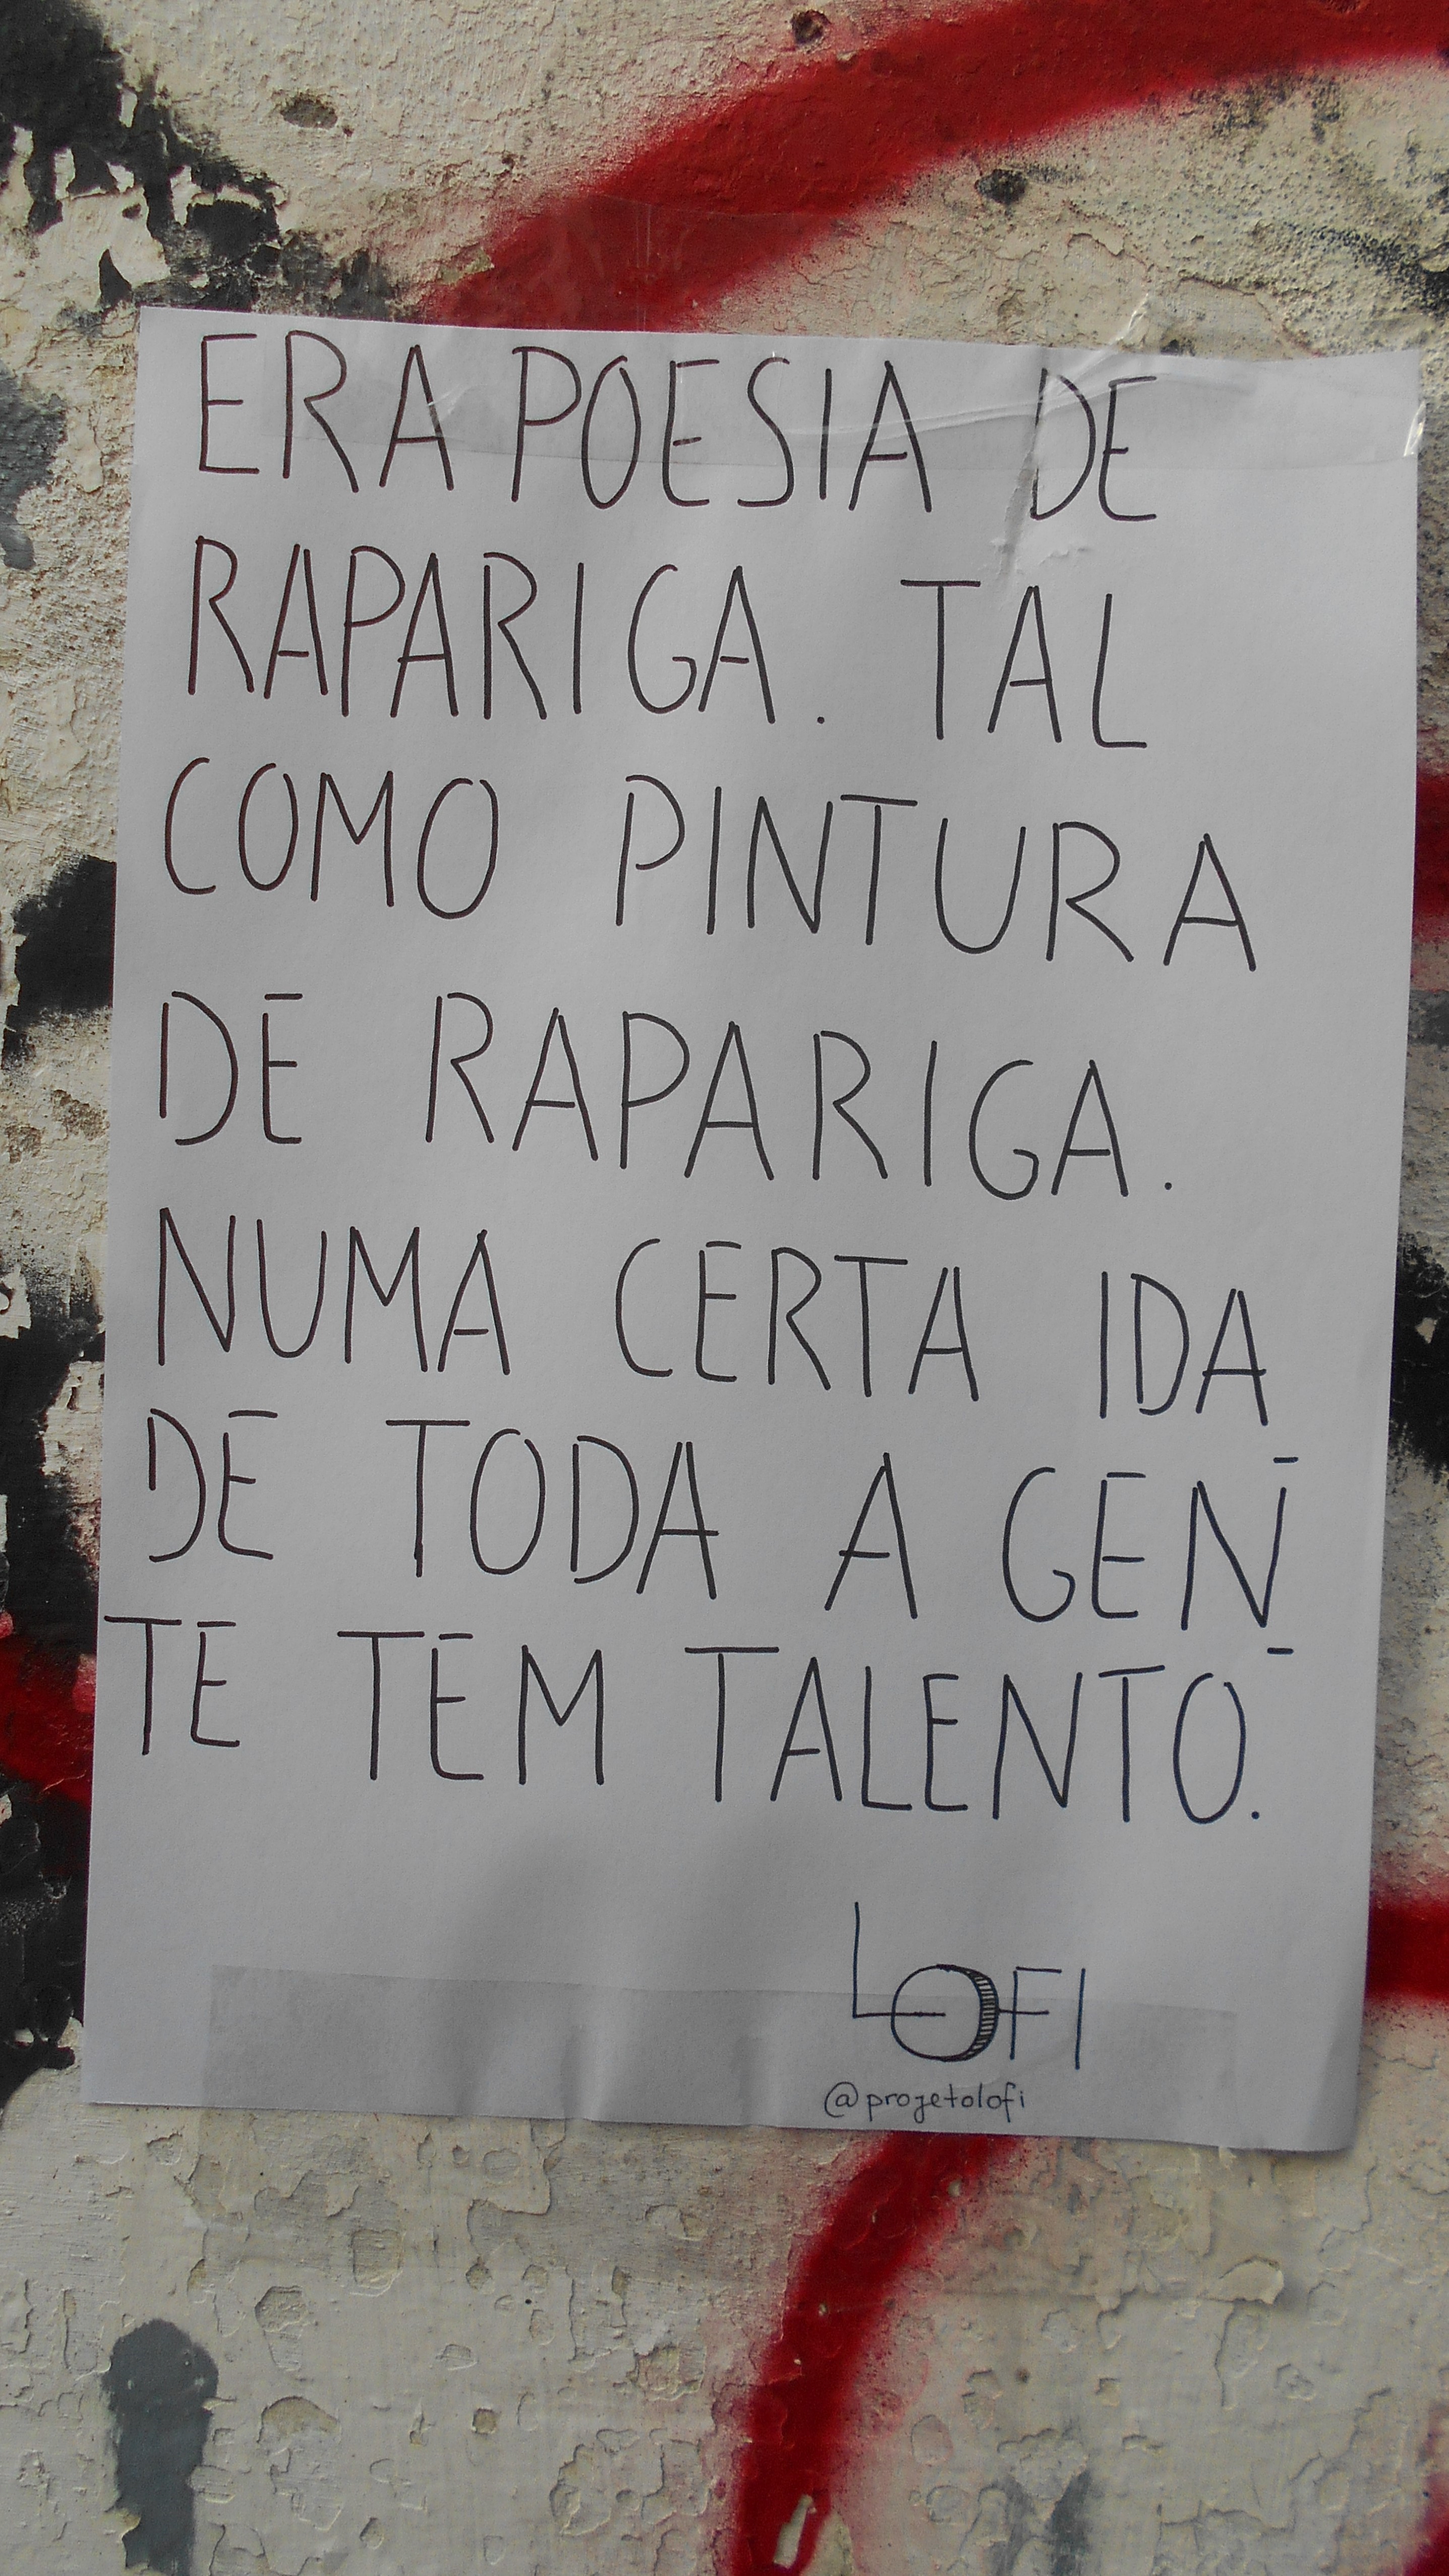 ERA POESIA DE
RAPARIGA. TAL
COMO PINTURA
DE RAPARIGA.
NUMA CERTA IDA
DE TODA A GEN
TE TEM TALENTO.
LOFI
@projetolofi